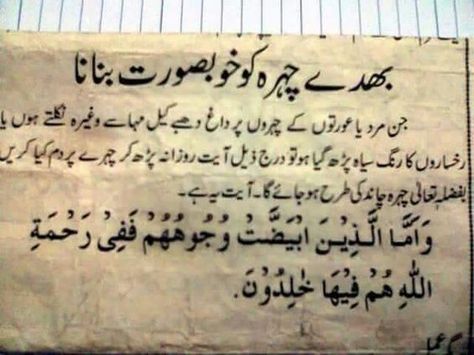 بھدے چہرہ کو خوبصورت بنانا
جن مرد یا عورتوں کے چہروں پر داغ دھبے کیل مہاسے وغیرہ نکلتے ہوں یا
رخساروں کا رنگ سیاہ پڑھ گیا ہو تو درج ذیل آیت روزانہ پڑھ کر چہرے پر دم کیا کریں
بفضلہ تعالیٰ چہرہ چاند کی طرح ہو جائے گا۔ آیت یہ ہے۔
وَاَمَّا الَّذِيْنَ ابْيَضَّتْ وُجُوْهُهُمْ فَفِيْ رَحْمَةِ
اللّٰهِ هُمْ فِيْهَا خٰلِدُوْنَ.